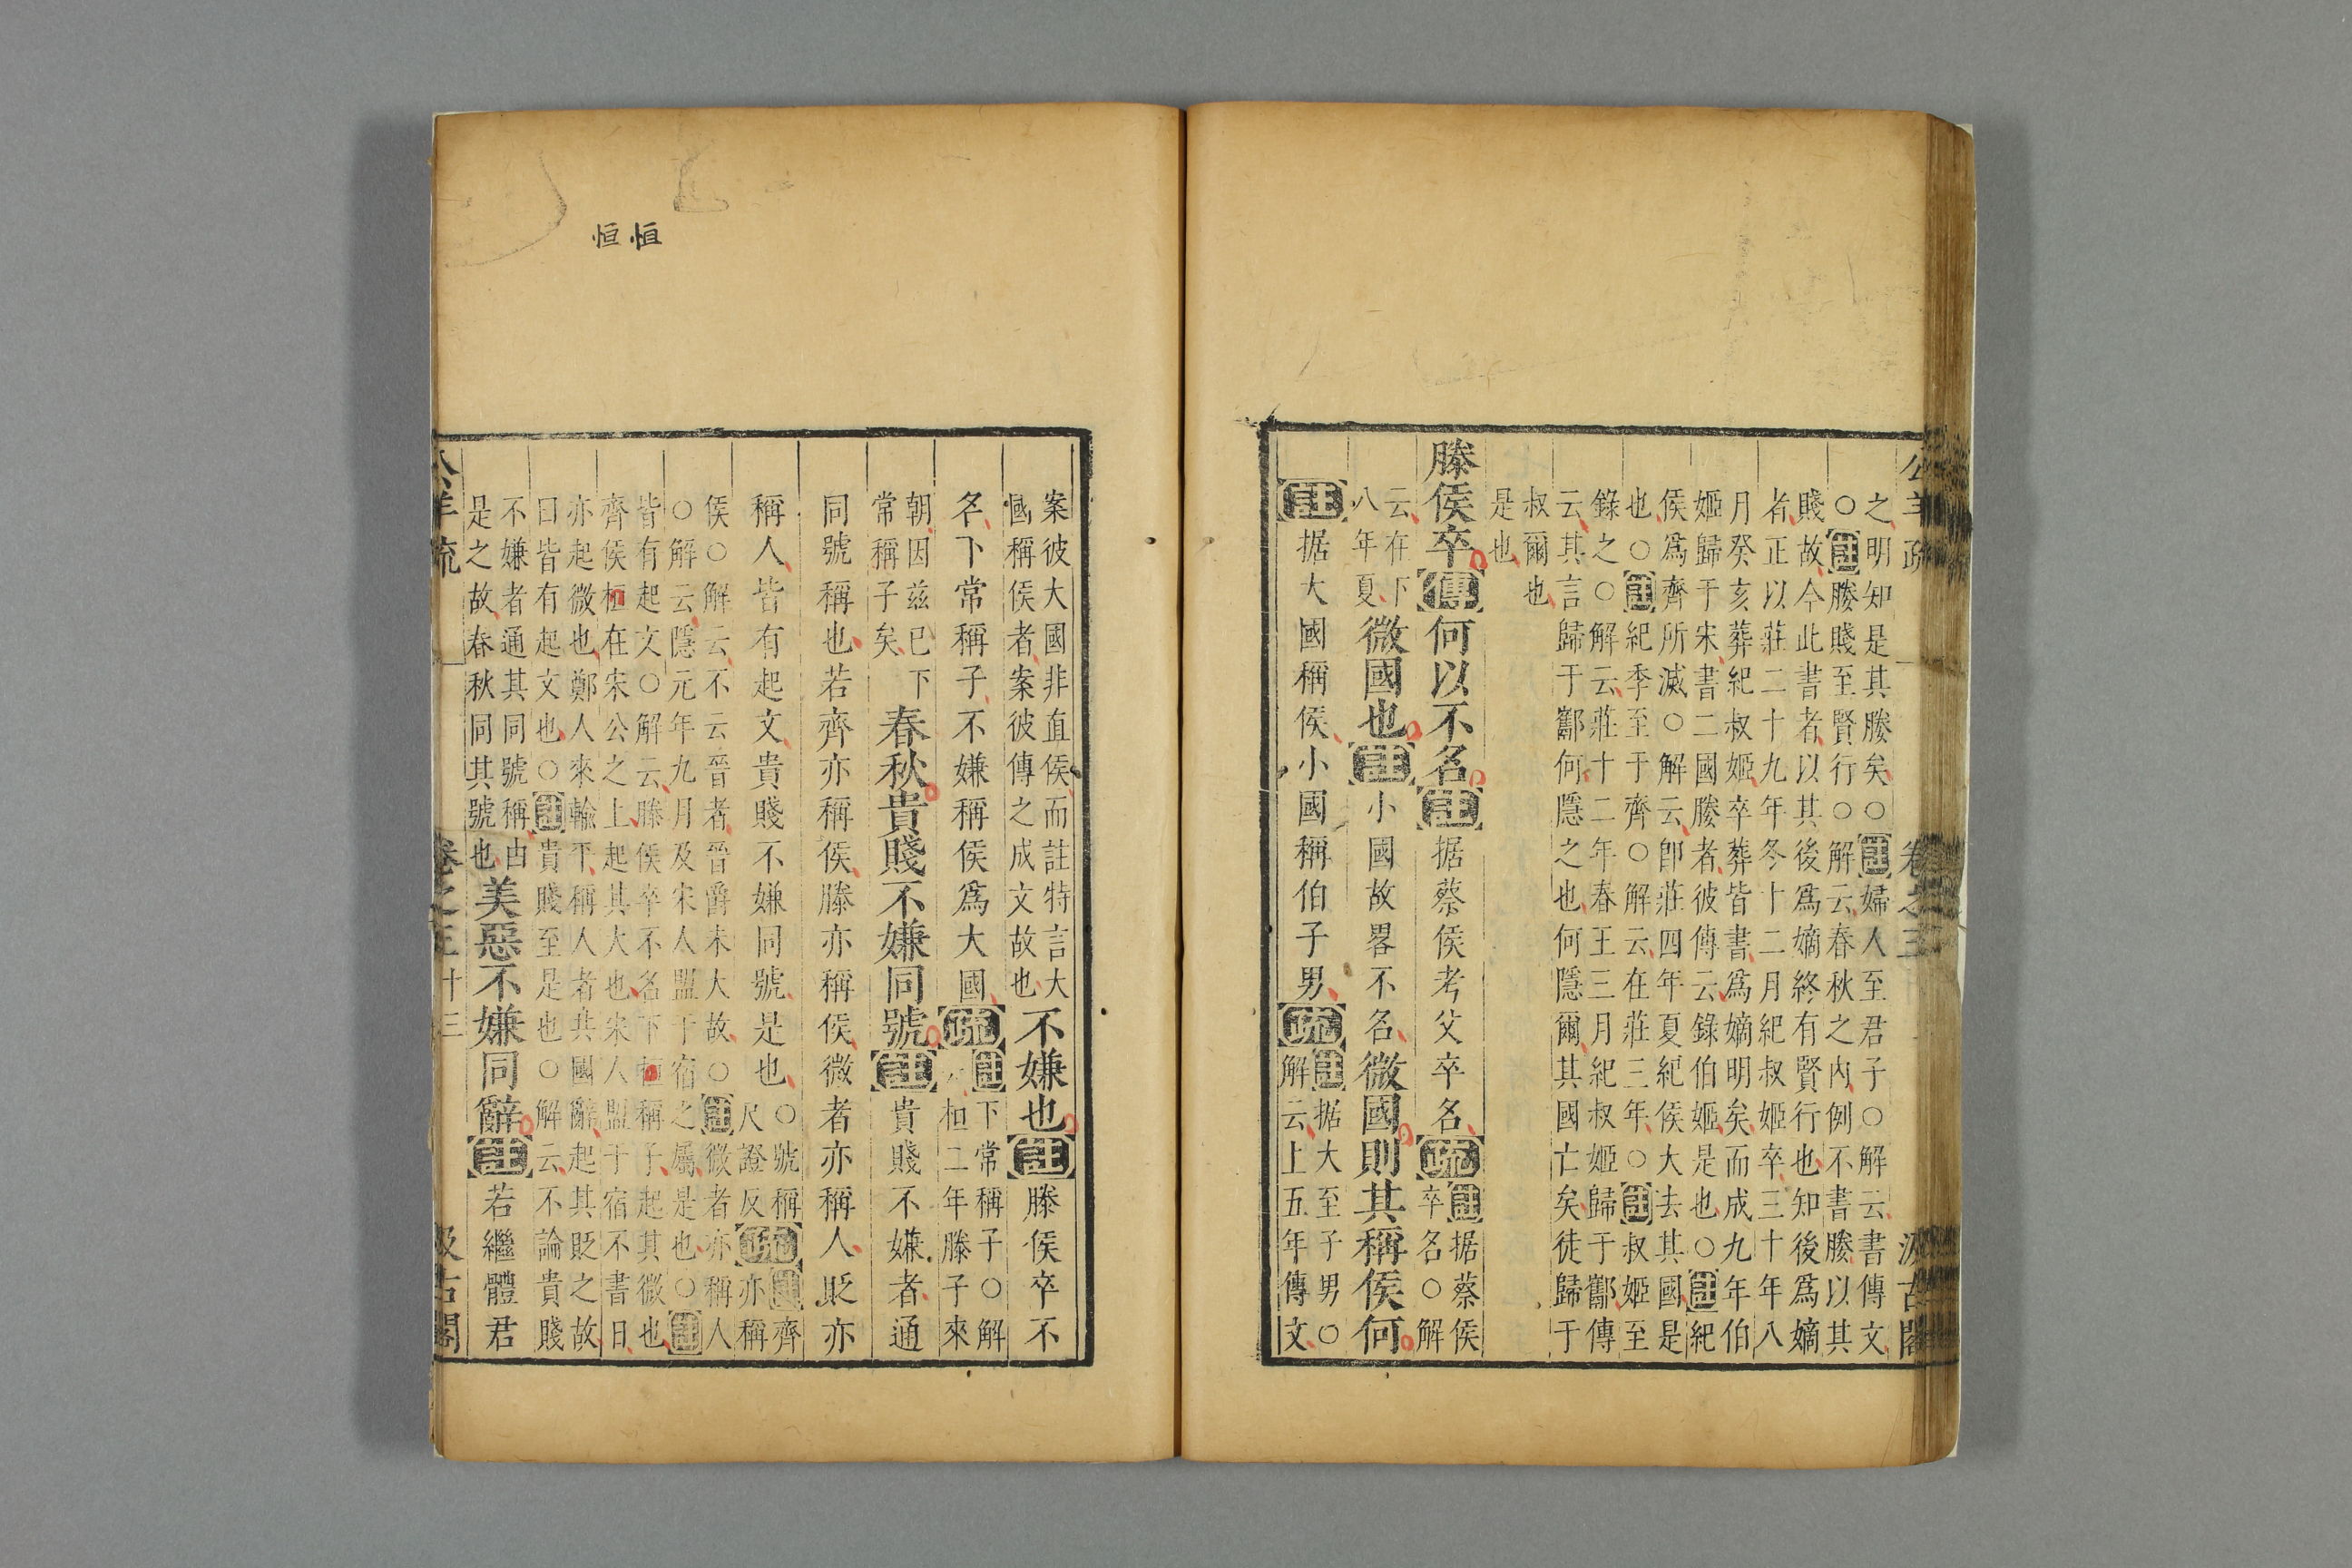 公羊疏 卷之三 汲古閣
之明知是其媵矣○註婦人至君子○解云書傳文
○註媵賤至賢行○解云春秋之內例不書媵以其
賤故今此書者以其後爲嫡終有賢行也知後爲嫡
者正以莊二十九年冬十二月紀叔姬卒三十年八
月癸亥葬紀叔姬卒葬皆書爲嫡明矣而成九年伯
姬歸于宋書二國媵者彼傳云錄伯姬是也○註紀
侯爲齊所滅○解云卽莊四年夏紀侯大去其國是
也○註紀季至于齊○解云在莊三年○註叔姬至
錄之○解云莊十二年春王三月紀叔姬歸于酅傳
云其言歸于酅何隱之也何隱爾其國亡矣徒歸于
叔爾也
是也
滕侯卒傳何以不名註据蔡侯考父卒名疏註据蔡侯卒名○解
云在下八年夏微國也註小國故畧不名微國則其稱侯何
註据大國稱侯小國稱伯子男疏註据大至子男○解云上五年傳文
恒恒
案彼大國非直侯而註特言大國稱侯者案彼傳之成文故也不嫌也註滕侯卒不
名下常稱子不嫌稱侯爲大國疏註下常稱子○解云桓二年滕子來
朝因茲已下常稱子矣春秋貴賤不嫌同號註貴賤不嫌者通
同號稱也若齊亦稱侯滕亦稱侯微者亦稱人貶亦
稱人皆有起文貴賤不嫌同號是也○號稱尺證反疏註齊亦稱
侯○解云不云晉者晉爵未大故○註微者亦稱人
○解云隱元年九月及宋人盟于宿之屬是也○註
皆有起文○解云滕侯卒不名下恒稱子起其微也
齊侯恒在宋公之上起其大也宋人盟于宿不書日
亦起微也鄭人來輸平稱人者共國辭起其貶之故
曰皆有起文也○註貴賤至是也○解云不論貴賤
不嫌者通其同號稱由是之故春秋同其號也美惡不嫌同辭註若繼體君
公羊疏 卷之三 十三 汲古閣